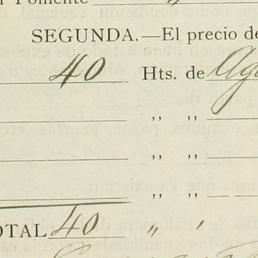 Fomento "
SEGUNDA.—El precio de
40 Hts. de Ag
,, ,,
,, ,,
,, ,,
OTAL 40 " '